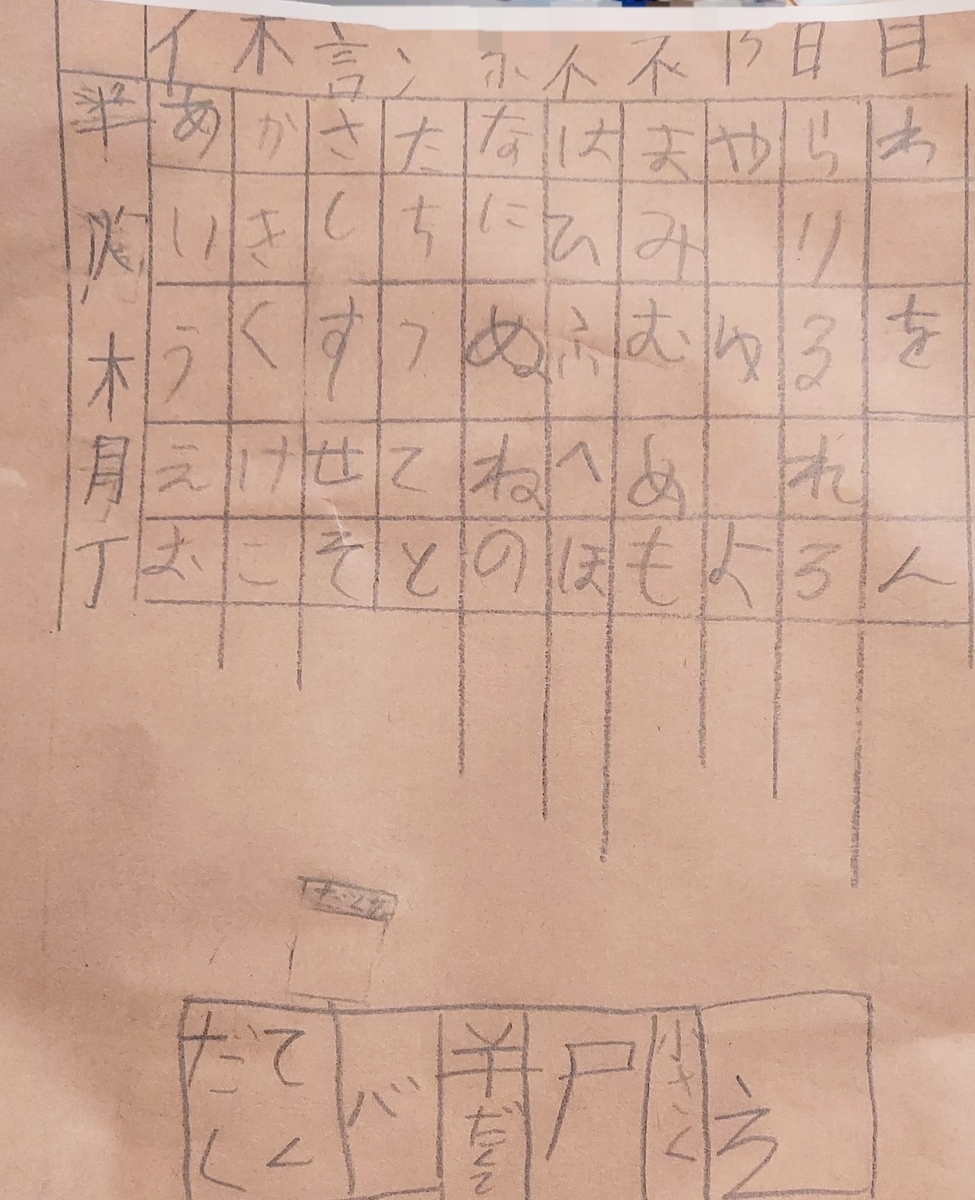 イ 木 言 ン ホ 不 不 卩 日 目
あ か さ た な は ま や ら わ
い き し ち に ひ み り
う く す つ ぬ ふ む ゆ る を
木
え け せ て ね へ め れ
月
お こ そ と の ほ も よ ろ ん
丁
だ て
く く
バ
半
だくて
戸
小さく
え